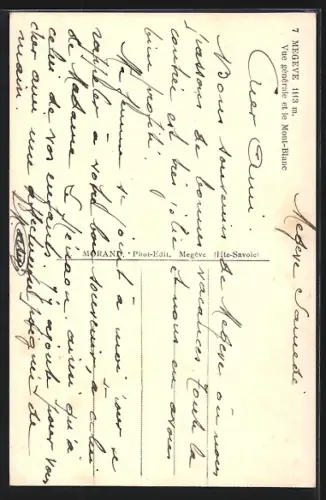 7 MEGEVE 1113 m.
Vue générale et le Mont-Blanc
MORAND, Phot-Edit. Megève (Hte-Savoie)
Megève Samedi
Cher Ami.
Bons souvenirs de Megève où nous
passons de bonnes vacances. Toute la
contrée est très jolie et nous en avons
bien profité.
Ma femme se joint à moi pour se
rappeler à votre bon souvenir, à celui
de Madame ainsi qu'à
celui de vos enfants. J'y ajoute pour vous
cher ami une affectueuse poignée de
main.